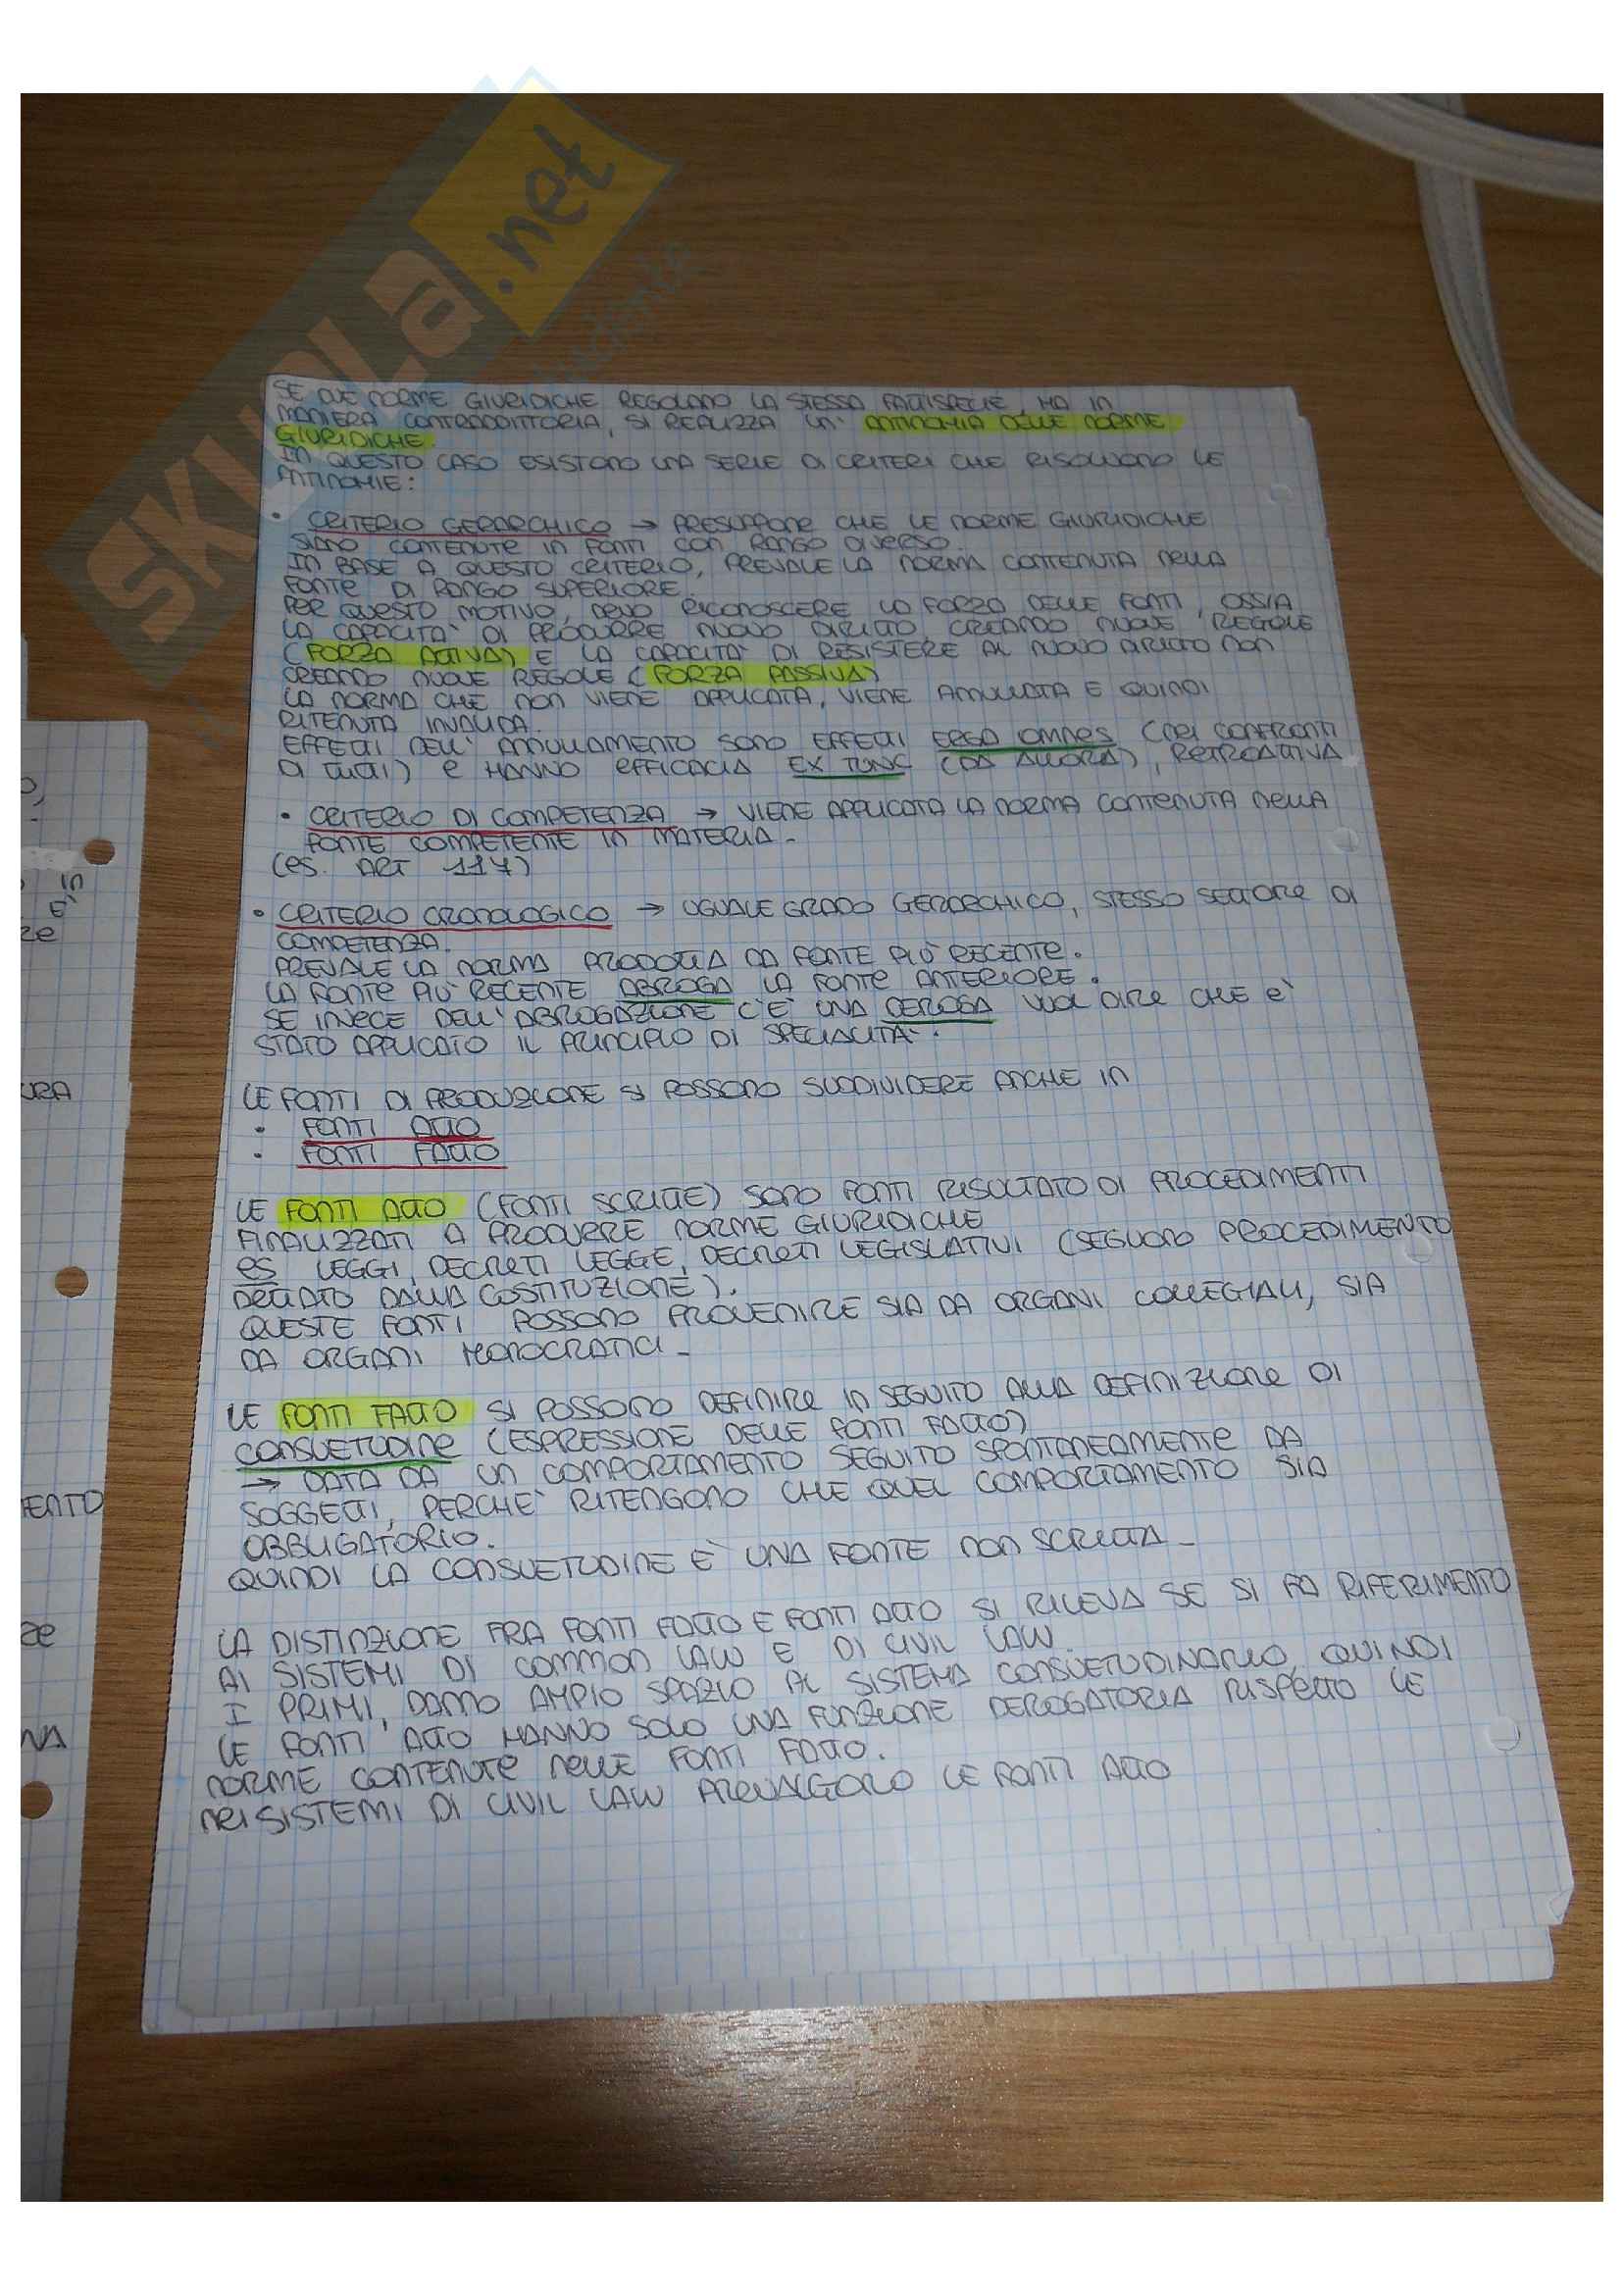 SKUOLA.net
SE DUE NORME GIURIDICHE REGOLANO LA STESSA FATTISPECIE, MA IN
MANIERA CONTRADDITTORIA, SI REALIZZA UN' ANTINOMIA DELLE NORME
GIURIDICHE.
IN QUESTO CASO ESISTONO UNA SERIE DI CRITERI CHE RISOLVONO LE
ANTINOMIE:
• CRITERIO GERARCHICO → PRESUPPONE CHE LE NORME GIURIDICHE
SIANO CONTENUTE IN FONTI CON RANGO DIVERSO.
IN BASE A QUESTO CRITERIO, PREVALE LA NORMA CONTENUTA NELLA
FONTE DI RANGO SUPERIORE.
PER QUESTO MOTIVO, DEVO RICONOSCERE LA FORZA DELLE FONTI, OSSIA
LA CAPACITA' DI PRODURRE NUOVO DIRITTO, CREANDO NUOVE REGOLE
(FORZA ATTIVA) E LA CAPACITA' DI RESISTERE AL NUOVO DIRITTO NON
CREANDO NUOVE REGOLE (FORZA PASSIVA)
LA NORMA CHE NON VIENE APPLICATA, VIENE ANNULLATA E QUINDI
RITENUTA INVALIDA.
EFFETTI DELL' ANNULLAMENTO SONO EFFETTI ERGA OMNES (NEI CONFRONTI
DI TUTTI) E HANNO EFFICACIA EX TUNC (DA ALLORA), RETROATTIVA
• CRITERIO DI COMPETENZA → VIENE APPLICATA LA NORMA CONTENUTA NELLA
FONTE COMPETENTE IN MATERIA.
(ES. ART 117)
• CRITERIO CRONOLOGICO → UGUALE GRADO GERARCHICO, STESSO SETTORE DI
COMPETENZA.
PREVALE LA NORMA PRODOTTA DA FONTE PIÙ RECENTE.
LA FONTE PIÙ RECENTE ABROGA LA FONTE ANTERIORE.
SE INVECE DELL'ABROGAZIONE C'E' UNA DEROGA VUOL DIRE CHE E'
STATO APPLICATO IL PRINCIPIO DI SPECIALITA'.
LE FONTI DI PRODUZIONE SI POSSONO SUDDIVIDERE ANCHE IN
• FONTI ATTO
• FONTI FATTO
LE FONTI ATTO (FONTI SCRITTE) SONO FONTI RISULTATO DI PROCEDIMENTI
FINALIZZATI A PRODURRE NORME GIURIDICHE
ES LEGGI, DECRETI LEGGE, DECRETI LEGISLATIVI (SEGUONO PROCEDIMENTO
DETTATO DALLA COSTITUZIONE).
QUESTE FONTI POSSONO PROVENIRE SIA DA ORGANI COLLEGIALI, SIA
DA ORGANI MONOCRATICI.
LE FONTI FATTO SI POSSONO DEFINIRE IN SEGUITO ALLA DEFINIZIONE DI
CONSUETUDINE (ESPRESSIONE DELLE FONTI FATTO)
→ DATA DA UN COMPORTAMENTO SEGUITO SPONTANEAMENTE DA
SOGGETTI, PERCHE' RITENGONO CHE QUEL COMPORTAMENTO SIA
OBBLIGATORIO.
QUINDI LA CONSUETUDINE E' UNA FONTE NON SCRITTA.
LA DISTINZIONE FRA FONTI FATTO E FONTI ATTO SI RILEVA SE SI FA RIFERIMENTO
AI SISTEMI DI COMMON LAW E DI CIVIL LAW.
I PRIMI, DANNO AMPIO SPAZIO AL SISTEMA CONSUETUDINARIO, QUINDI
LE FONTI ATTO HANNO SOLO UNA FUNZIONE DEROGATORIA RISPETTO LE
NORME CONTENUTE NELLE FONTI FATTO.
NEI SISTEMI DI CIVIL LAW PREVALGONO LE FONTI ATTO